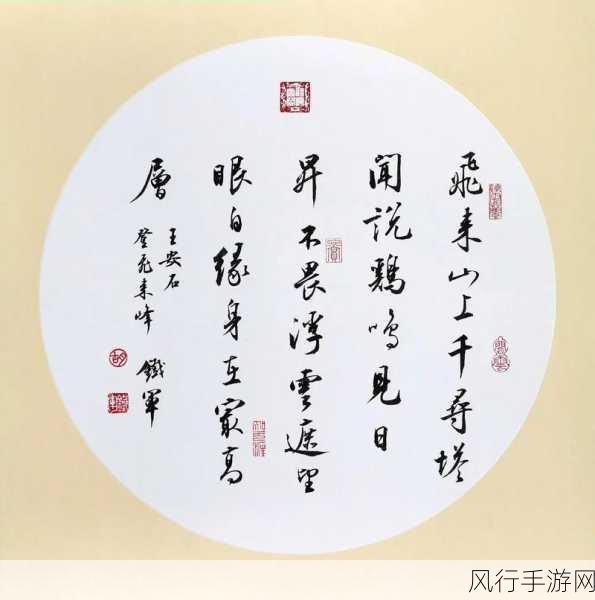 飛來山上千尋塔
聞説鷄鳴見日
昇不畏浮雲遮望
眼自緣身在最高
層
王安石
登飛來峰
鐵軍
风行手游网